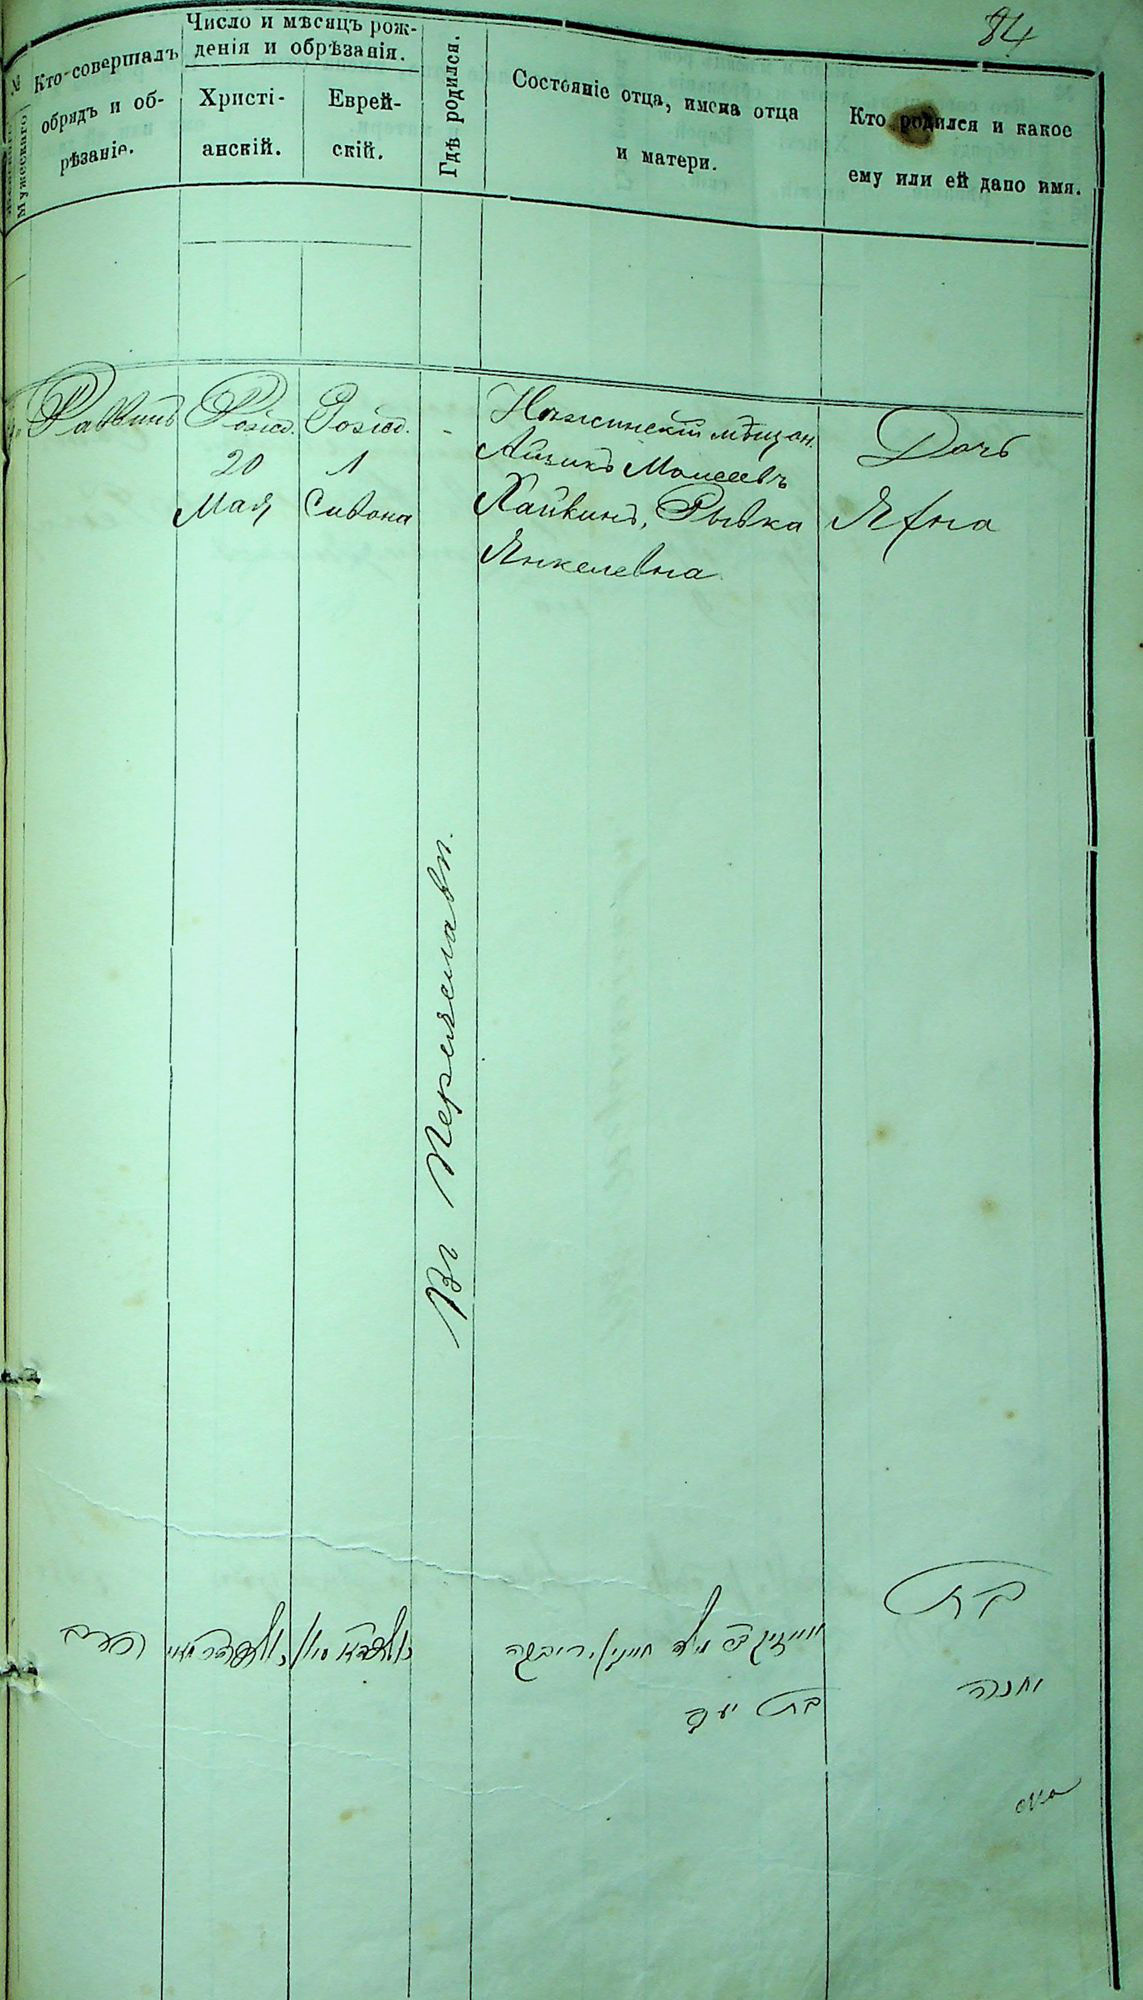 84
№
Мужескаго
Кто совершалъ
обрядъ и об-
рѣзаніе.
Число и мѣсяцъ рож-
денія и обрѣзанія.
Христі-
анскій.
Еврей-
скій.
Гдѣ родился.
Состояніе отца, имена отца
и матери.
Кто родился и какое
ему или ей дано имя.
Раввинъ
Рожд.
20
Мая
Рожд.
1
Сивона
Въ Переяславѣ.
Нѣжинскій мѣщан.
Айзикъ Моисеевъ
Хайкинъ, Рывка
Янкелевна
Дочь
Яхна
הרב
בת
יחנה
בת